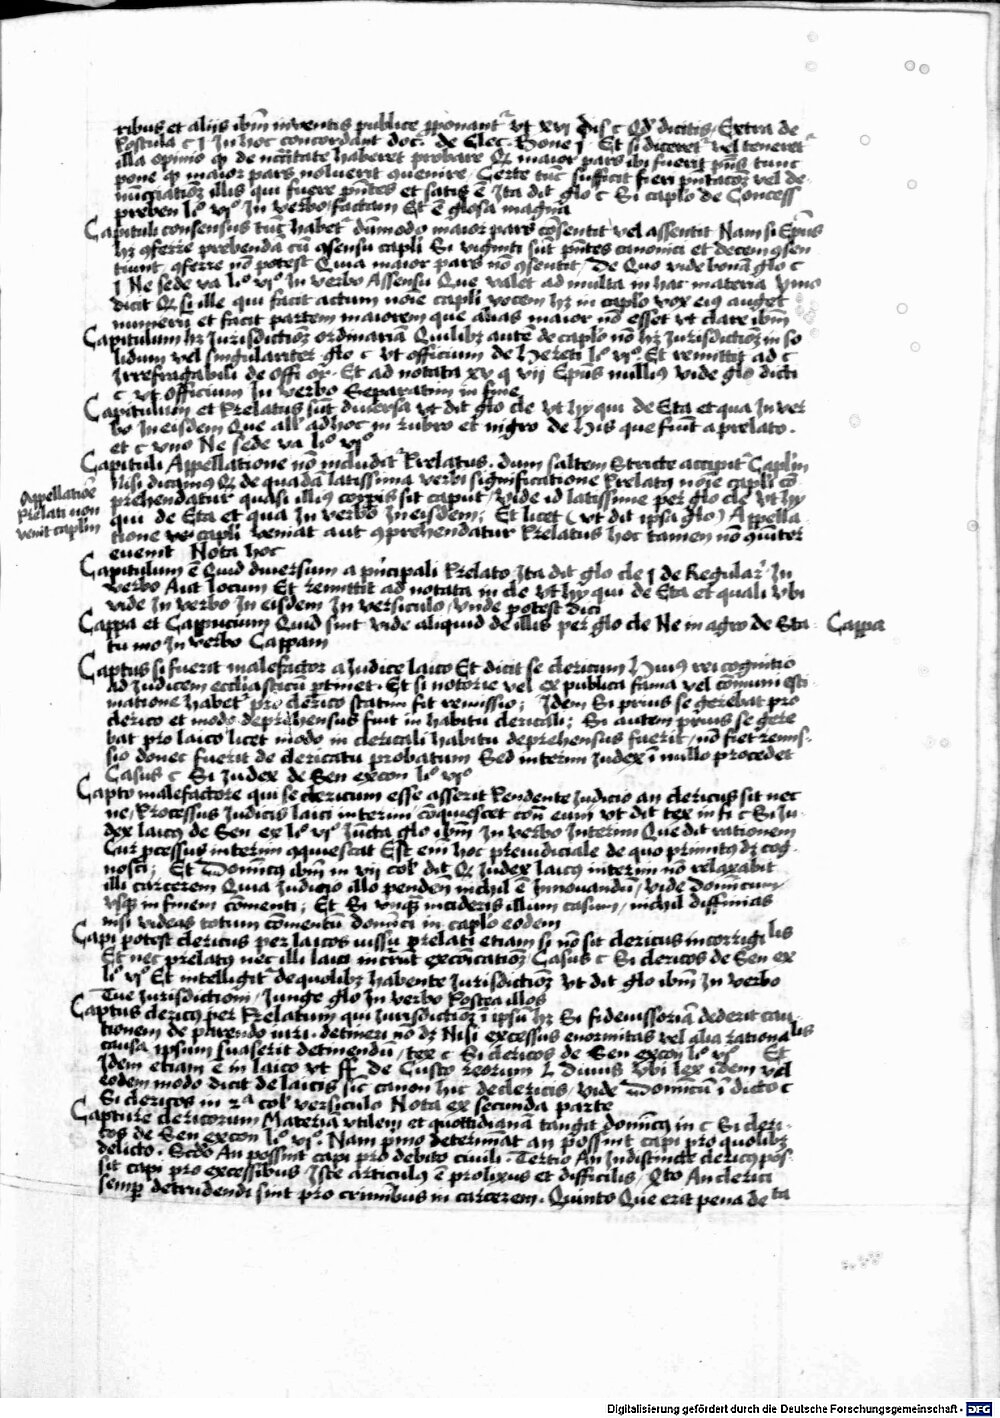 ribus et aliis ibm inventis publice pponant' vt xvi dis c Qd dicitis, Extra de
Postula c j In hoc concordant doc. de Elec. Bone j Et si diceret' vel teneret'
illa opinio qp de necitate haberet probare Q maior pars ibi fuerit pns tunc
pone qp maior pars noluerit quenire, Certe tuc sufficit fieri vel de
illis qui fuere pntes et satis e Ita dit glo c Si caplo de Concess
preben li° vi° In verbo, factam Et e glosa magna
Capituli consensus tuc habet' dumodo maior pars consentit vel assentit Nam si Epus
hz qferre prebenda cu qsensu capli Si viginti sut pntes canonici et decem qsen
tiunt, qferre no potest Quia maior pars no qsentit, De Quo vide bona glo c
j Ne sede va li° vi° In verbo Assensu Que valet ad multa in hac materia ymo
dicit Q si ille qui facit actum noie capli vocem hz in caplo vox eius auget
numeru et facit partem maiorem que alias maior no esset vt clare ibm
Capitulum hz Jurisdictioz ordinaria Quilibz aute de caplo no hz Jurisdictioz in so
lidum vel singulariter glo c vt officium de Hereti li° vi° Et remittit ad c
Irrefragabili de offi or. Et ad notata xv q vij Epus nullus vide glo dicti
c vt officium In verbo Separatim in fine
Capitulum et Prelatus sut diversa vt dit glo cle vt hy qui de Eta et qua In ver
bo In eisdem Que all' ad hoc in rubro et nigro de His que fiut a prelato.
et c vno Ne sede va li° vi°
Capituli Appellatione no includit' Prelatus. dum saltem Stricte accipit' Caplm
Nisi dicamus Q de quada latissima verbi significatione Prelatus noie capli co
prehendatur quasi illius corpis sit caput, vide id latissime per glo cle vt hy
qui de Eta et qua In verbo In eisdem; Et licet (vt dit ipsa glo) Appella
tione capli veniat aut qprehendatur Prelatus hoc tamen no quiter
evenit Nota hoc
Appellatioe
Prelati non
venit caplm
Capitulum e Quid diversum a pncipali Prelato Ita dit glo cle j de Regular' In
verbo Aut locum Et remittit ad notata in cle vt hy qui de Eta et quali vbi
vide In verbo In eisdem In versiculo, vnde potest dici
Cappa et Caputium Quid sint vide aliquid de illis per glo cle Ne in agro de Sta
tu mo In verbo Cappam
Cappa
Captus si fuerit malefactor a Judice laico Et dicit se clericum Huius rei cognitio
ad Judicem ecclasticu ptinet. Et si notorie vel ex publica fama vel comuni esti
matione habet' pro clerico statim fit remissio; Idem Si prius se gerebat pro
clerico et modo deprehensus fuit in habitu clericali; Si autem prius se gere
bat pro laico licet modo in clericali habitu deprehensus fuerit, no fiet remis-
sio donec fuerit de clericatu probatum Sed interim Judex i nullo procedet
Casus c Si Judex de Sen excon li° vi°
Capto malefactore qui se clericum esse asserit Pendente Judicio an clericus sit nec
ne, Processus Judicis laici interim coquiescet con eum vt dit tex in fi c Si Ju-
dex laicus de Sen ex li° vi° Juncta glo ibm In verbo Interim Que dit rationem
Cur pcessus interim qquiescat Est eni hoc preiudiciale de quo primitus dz cog-
nosci; Et Dominicus ibm in vij col' dit Q Judex laicus interim no relaxabit
illi carcerem Quia Judicio illo penden nichil e Innovandu, vide Dominicum
vsqz in finem comenti; Et Si vnqz incideris illum casum, nichil diffinias
nisi videas totum comentu dominici in caplo eodem
Capi potest clericus per laicos iussu prelati etiam si no sit clericus incorrigilis
Et nec prelatus nec illi laici incrut excoicatioz, Casus c Si clericos de Sen ex
li° vi° Et intelligit' de quolibz habente Jurisdictioz vt dit glo ibm In verbo
Tue Jurisdictioni, Junge glo In verbo Postea illos
Captus clericus per Prelatum qui Jurisdictioz i ipsu hz Si fideiussoria dederit cau-
tionem de parendo iuri. detineri no dz Nisi excessus enormitas vel alia rationalis
causa ipsum suaserit detinendu, tex c Si clericos de Sen excon li° vi° Et
Idem etiam e in laico vt ff de Custo reorum L Divus Vbi lex idem vel
eodem modo dicit de laicis sic canon hic de clericis, vide Dominicu i dicto c
Si clericos in 2a col' versiculo Nota ex secunda parte
Capture clericorum Materia vtilem et quottidiana tangit dominicus in c Si cleri-
cos de Sen excon li° vi°. Nam pmo determinat an possint capi pro quolibz
delicto. Scdo An possint capi pro debito civili. Tertio An Indistincte clericus pos-
sit capi pro excessibus, Iste articulus e prolixus et difficilis, Qto An clerici
semp detrudendi sint pro criminibus in carcerem. Quinto Que erit pena de ta
Digitalisierung gefördert durch die Deutsche Forschungsgemeinschaft - DFG